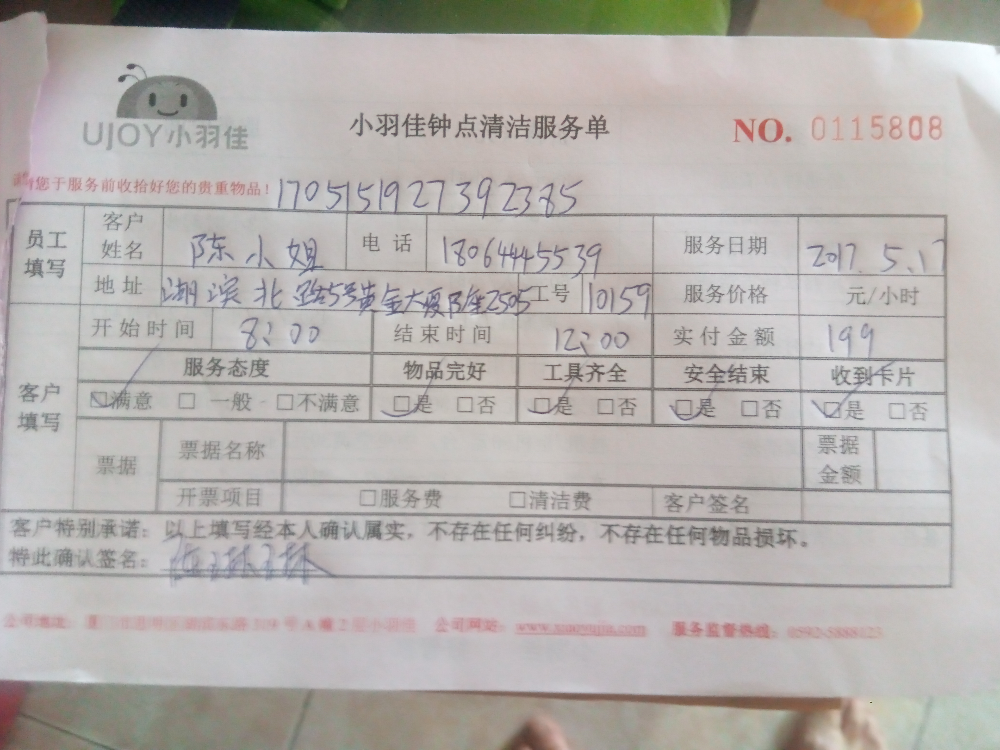 UJOY小羽佳
小羽佳钟点清洁服务单
NO. 0115808
您于服务前收拾好您的贵重物品！ 1705151927392385
员工填写 客户姓名 陈小姐 电话 18064445539 服务日期 2017.5.17
地址 湖滨北路5号黄金大厦B座2505 工号 10159 服务价格 元/小时
客户填写 开始时间 8:00 结束时间 12:00 实付金额 199
服务态度 物品完好 工具齐全 安全结束 收到卡片
☑满意 □一般 □不满意 ☑是 □否 ☑是 □否 ☑是 □否 ☑是 □否
票据 票据名称 票据金额
开票项目 □服务费 □清洁费 客户签名
客户特别承诺：以上填写经本人确认属实，不存在任何纠纷，不存在任何物品损坏。
特此确认签名：
公司地址： 号A幢2 小羽佳 公司网站：www.xiaoyujia.com 服务监督热线：0592-5888123